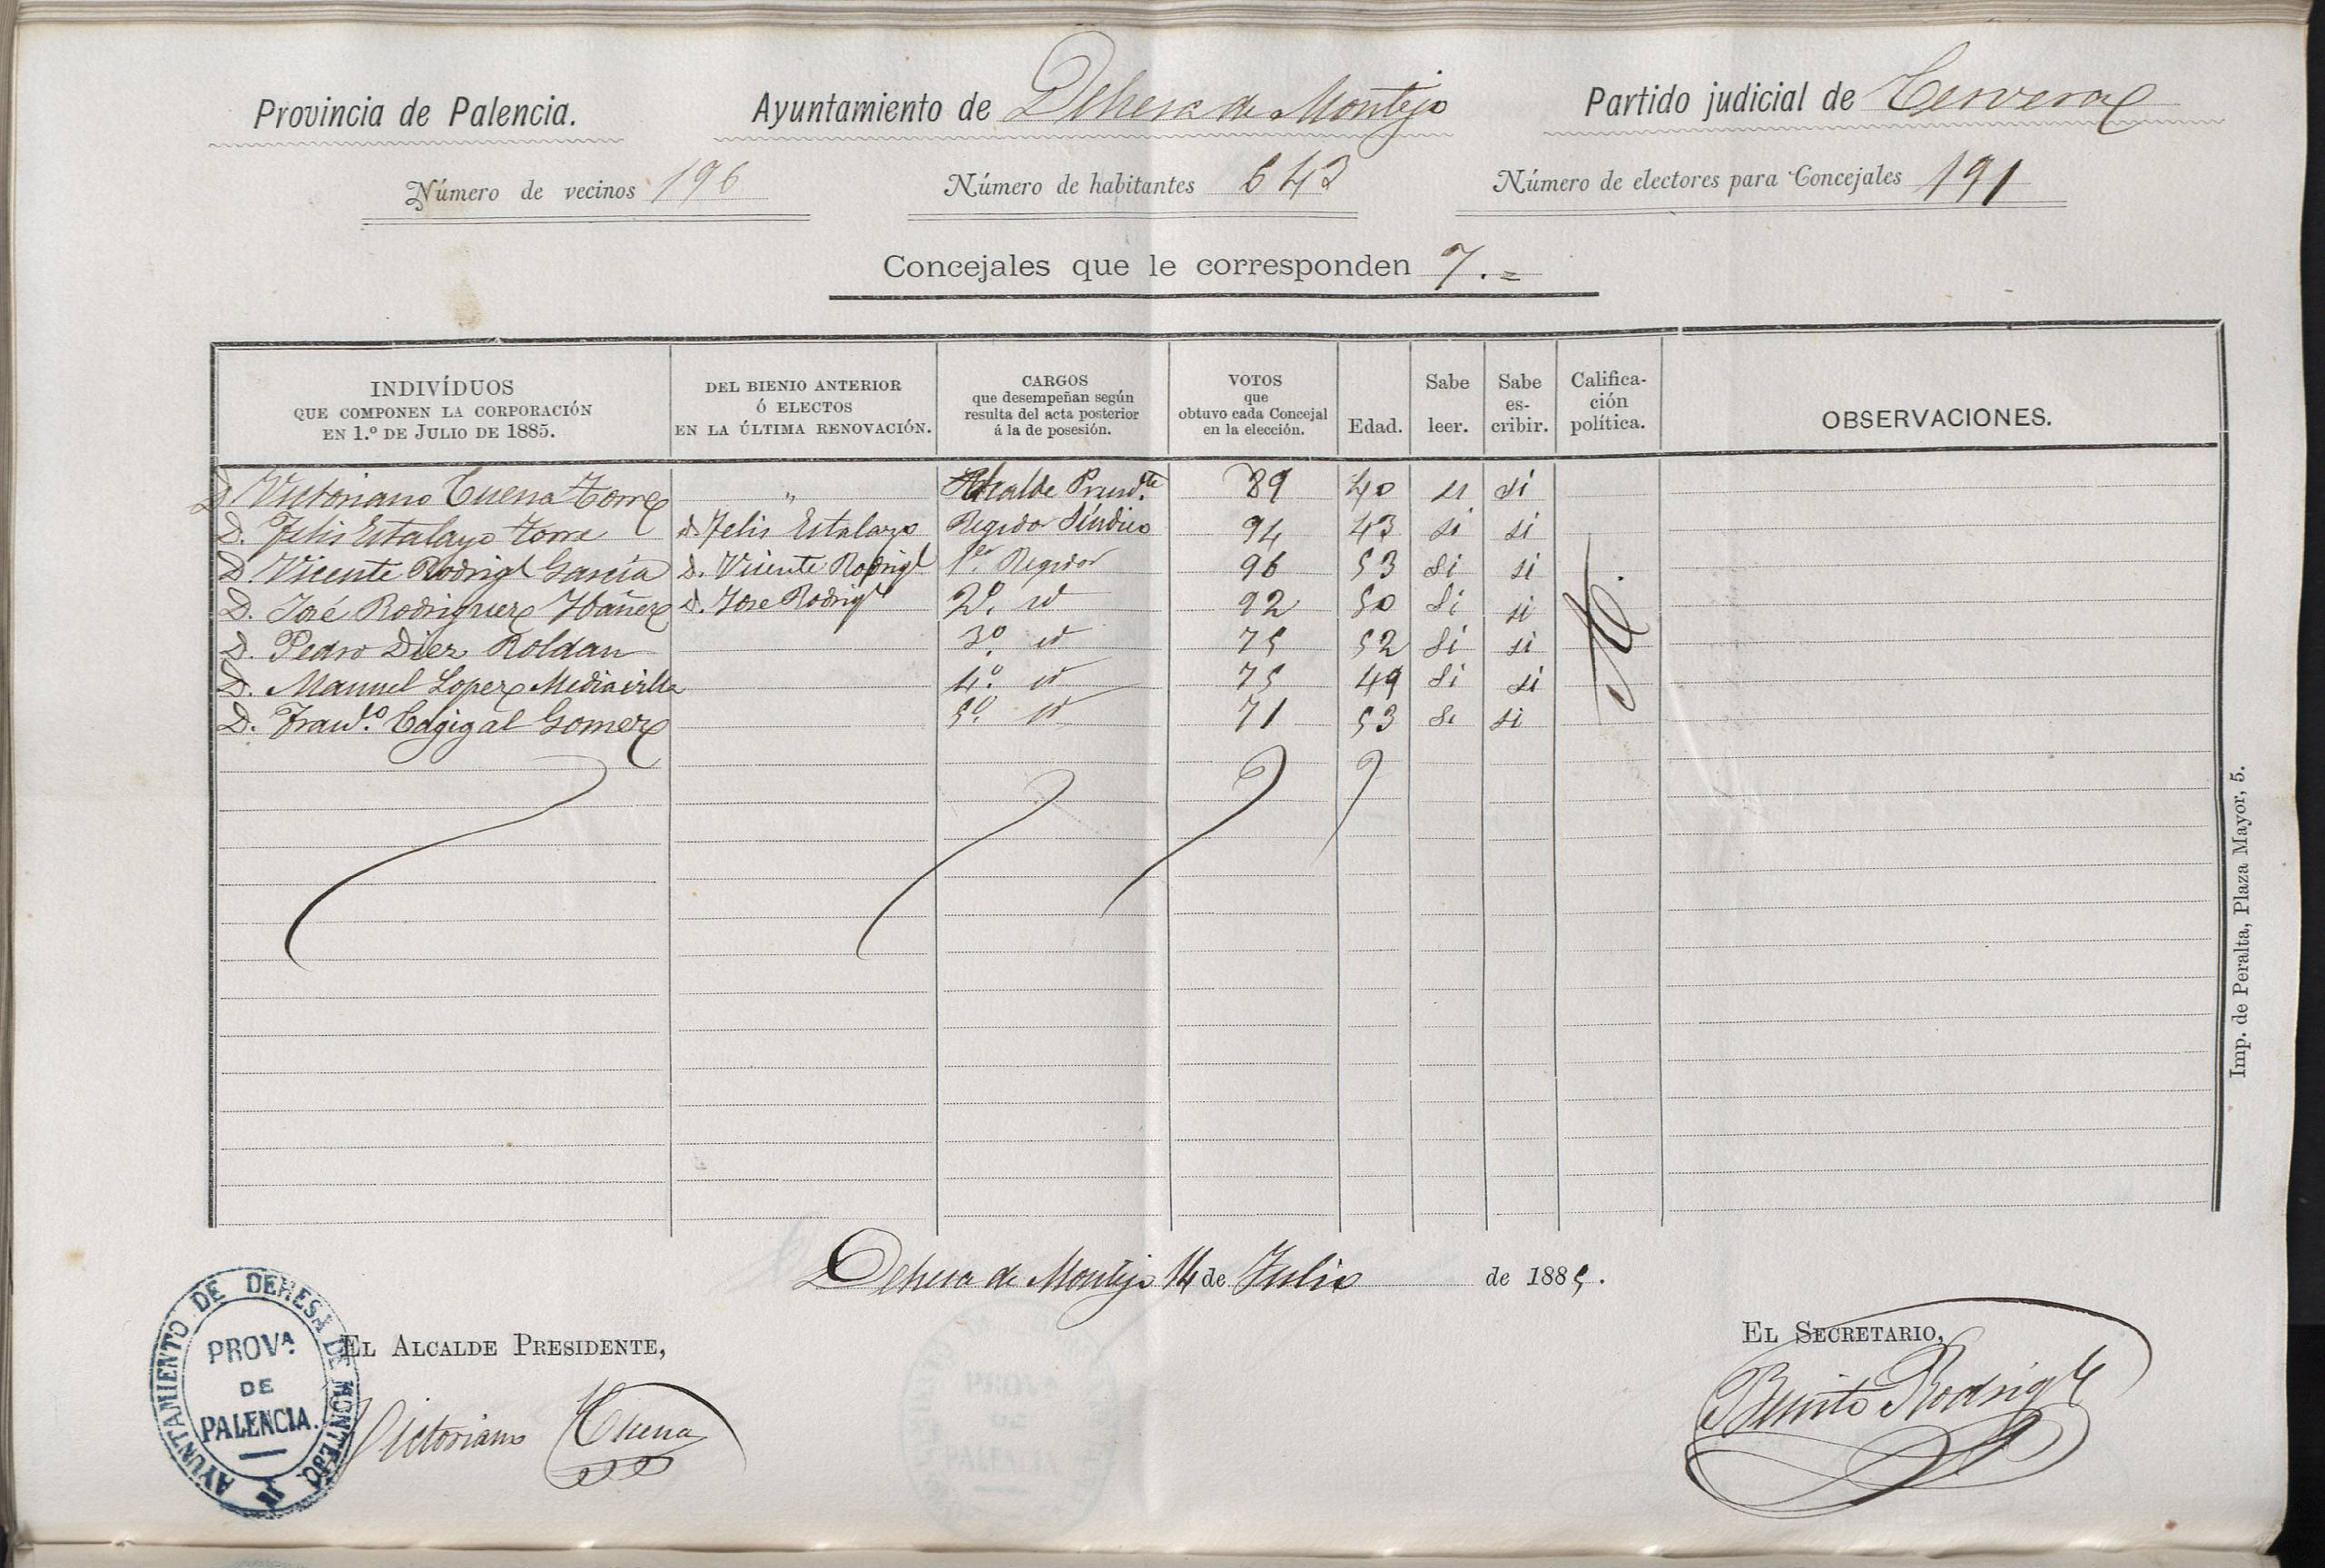 Provincia de Palencia. Ayuntamiento de Dehesa de Montejo Partido judicial de Cervera
Número de vecinos 196 Número de habitantes 643 Número de electores para Concejales 191
Concejales que le corresponden 7.=
INDIVÍDUOS
QUE COMPONEN LA CORPORACIÓN
EN 1.º DE JULIO DE 1885.
DEL BIENIO ANTERIOR
Ó ELECTOS
EN LA ÚLTIMA RENOVACIÓN.
CARGOS
que desempeñan según
resulta del acta posterior
á la de posesión.
VOTOS
que
obtuvo cada Concejal
en la elección.
Edad.
Sabe
leer.
Sabe
es-
cribir.
Califica-
ción
política.
OBSERVACIONES.
D Victoriano Cuena Torre " Alcalde Presid.te 89 40 si si
D. Felis Estalayo torre d. Felis Estalayo Regidor Síndico 94 43 si si
D. Vicente Rodrigz García D. Vicente Rodrigz 1.er Regidor 96 53 Si si
D. José Rodriguez Ybáñez d. Jose Rodrigz 2º. id 92 50 Si si
D. Pedro Diez Roldan 3º. id 75 52 Si si
D. Manuel Lopez Mediavilla 4º. id 75 49 Si si
D. Franco. Cagigal Gomez 5º. id 71 53 Si si
Dehesa de Montejo 14 de Julio de 1885.
EL ALCALDE PRESIDENTE, EL SECRETARIO,
Victoriano Cuena Benito Rodrigz
AYUNTAMIENTO DE DEHESA DE MONTEJO
PROV.ª
DE
PALENCIA.
Imp. de Peralta, Plaza Mayor, 5.